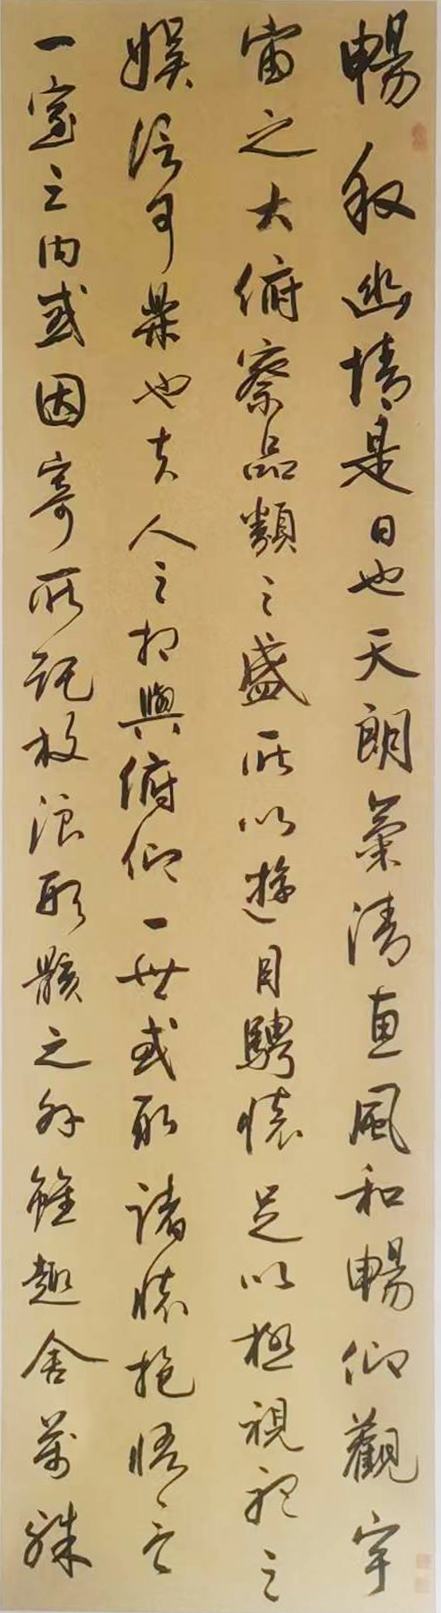 暢叙幽情是日也天朗氣清恵風和暢仰觀宇
宙之大俯察品類之盛所以遊目騁懐足以極視聽之
娯信可樂也夫人之相與俯仰一世或取諸懐抱悟言
一室之内或因寄所託放浪形骸之外雖趣舎萬殊